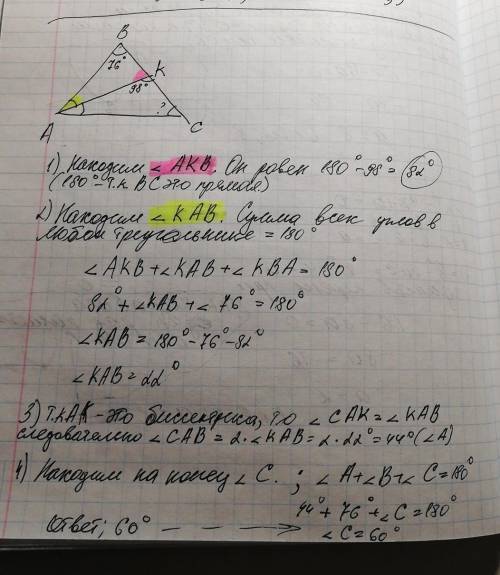 B
76°
K
98°
?
A
C
1) Находим ∠AKB. Он равен 180°-98°=82°
(180°-т.к. BC это прямая)
2) Находим ∠KAB. Сумма всех углов в
любом треугольнике = 180°
∠AKB+∠KAB+∠KBA=180°
82°+∠KAB+∠76°=180°
∠KAB=180°-76°-82°
∠KAB=22°
3) т.к AK-это биссектриса, то ∠CAK=∠KAB
следовательно ∠CAB=2·∠KAB=2·22°=44°(∠A)
4) Находим на конец ∠C. ; ∠A+∠B+∠C=180°
44°+76°+∠C=180°
∠C=60°
Ответ; 60°